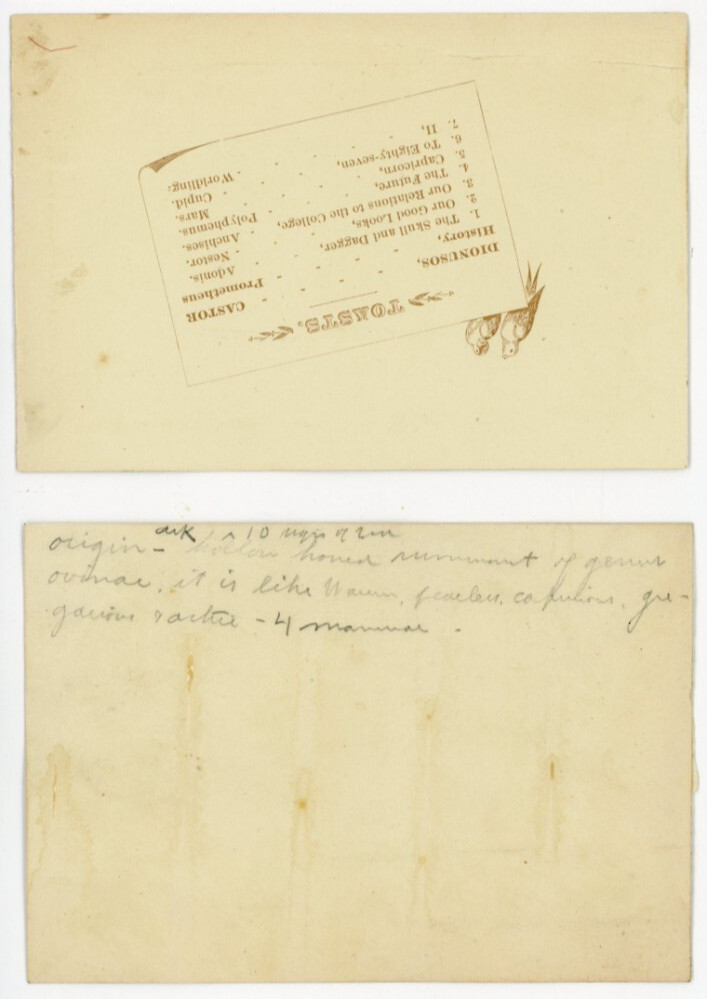 TOASTS.
DIONUSOS, - - - - CASTOR
History, - - - - Prometheus
1. The Skull and Dagger, - - Adonis.
2. Our Good Looks, - - - Nestor.
3. Our Relations to the College, - Anchises.
4. The Future, - - - Polyphemus.
5. Capricorn, - - - - Mars.
6. To Eighty-seven, - - - Cupid.
7. II, - - - - Worldling:
ark 10
origin - hollow horned ruminant of genus
ovinae, it is like Warren, fearless, capricious, gre-
garious & active - 4 mammae -